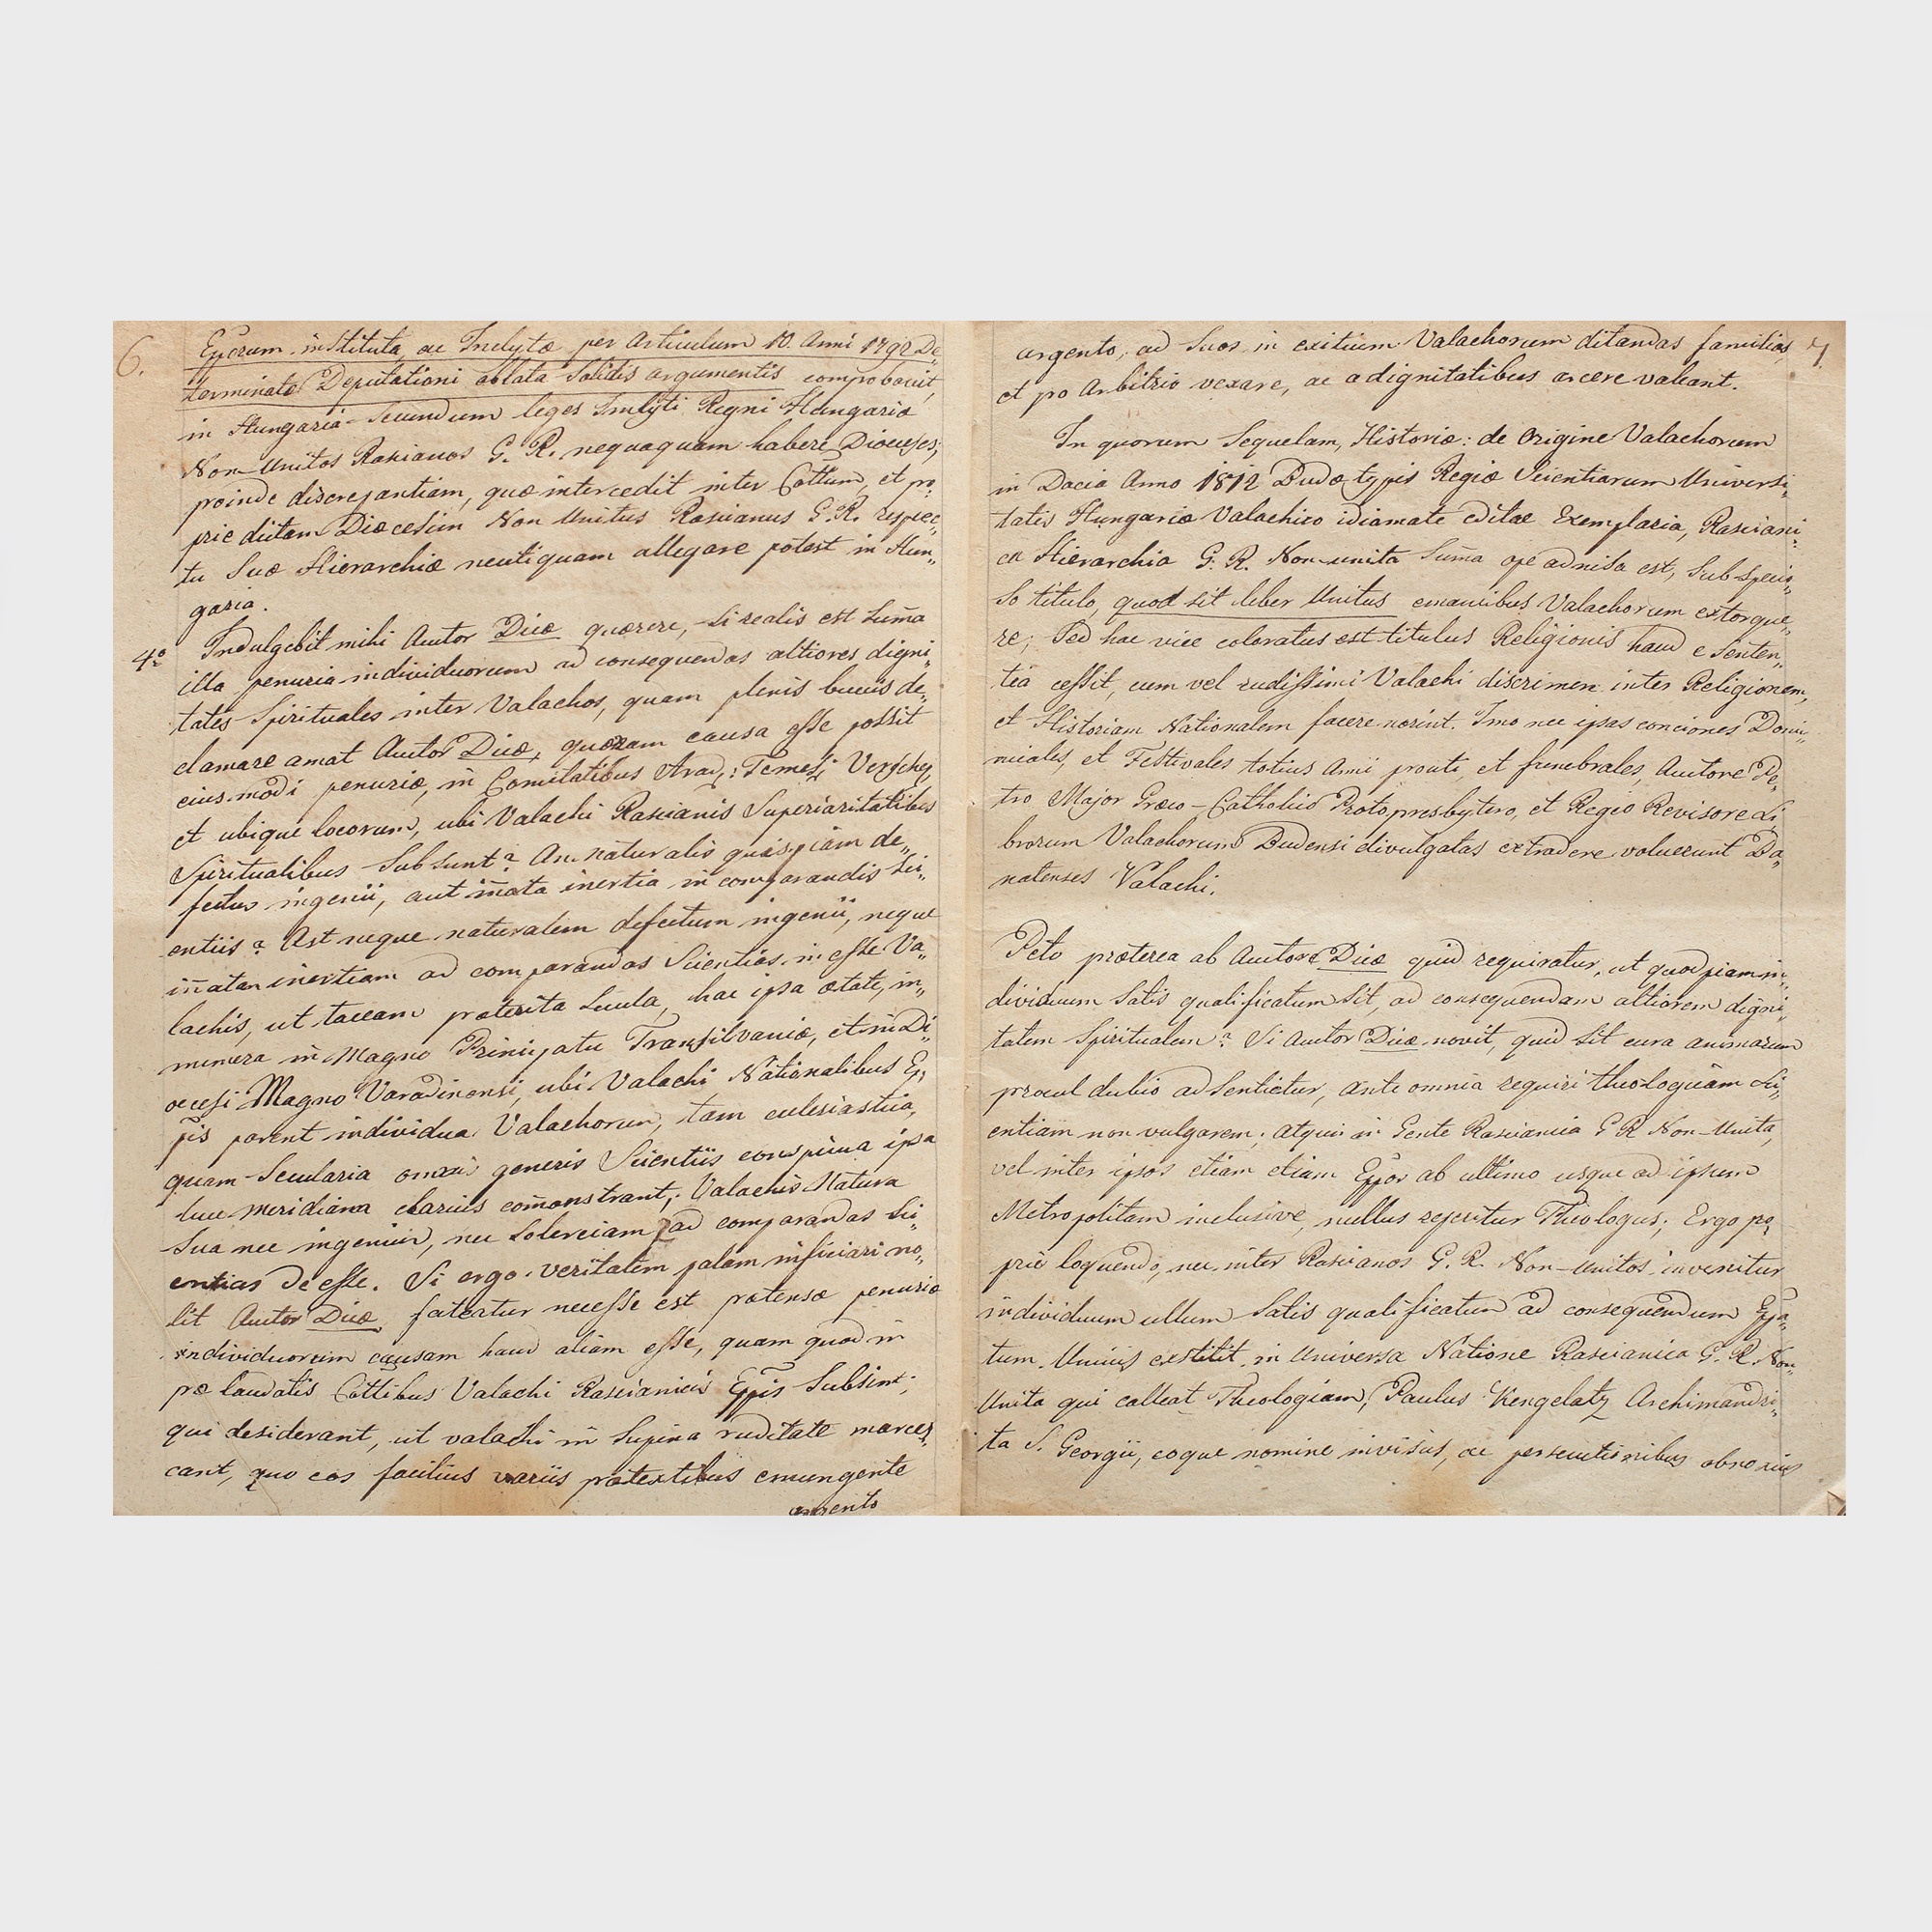 6.
Epporum instituta, ac Inclytæ per Articulum 10. Anni 1792 De„
terminatæ Deputationi oblata solidis argumentis comprobavit,
in Hungaria secundum leges Inclyti Regni Hungariæ
Non-Unitos Rascianos G. R. nequaquam habere Dioeceses;
proinde discrepantiam, quæ intercedit inter Cottum, et pro„
prie dictam Dioecesim Non Unitus Rascianus G. R. respec„
tu Suæ Hierarchiæ neutiquam allegare potest in Hun„
garia.
4º Indulgebit mihi Autor Dicæ quærere, si realis est sum̄a
illa penuria individuorum ad consequendas altiores digni„
tates Spirituales inter Valachos, quam plenis buccis de„
clamare amat Autor Dicæ, quænam causa esse possit
eiusmodi penuriæ, in Comitatibus Arad: Temes: Verschez,
et ubique locorum, ubi Valachi Rascianis Superiaritatibus
Spiritualibus Subsunt? An naturalis quispiam de„
fectus ingenii, aut in̄ata inertia in comparandis Sci„
entiis? Ast neque naturalem defectum ingenii, neque
in̄atam inertiam ad comparandas Scientias inesse Va„
lachis, ut taceam præterita Secula, hac ipsa ætate, in„
numera in Magno Principatu Transilvaniæ, et in Di„
oecesi Magno Varadinensi, ubi Valachi Nationalibus Ep„
pis parent individua Valachorum, tam ecclesiastica,
quam Secularia omnis generis Scientiis conspicua ipsa
luce meridiana clarius com̄onstrant; Valachis Natura
Sua nec ingenium, nec Solerciam ad comparandas Sci„
entias deesse. Si ergo veritatem palam inficiari no„
lit Autor Dicæ, fateatur necesse est prætensæ penuriæ
individuorum causam haud aliam esse, quam quod in
prælaudatis Cottibus Valachi Rascianicis Eppis Subsint;
qui desiderant, ut valachi in Supina ruditate marces„
cant, quo eos facilius variis prætextibus emungente
argento
7.
argento, ad Suos in exitium Valachorum ditandas familias
et pro Arbitrio vexare, ac a dignitatibus arcere valeant.
In quorum Sequelam, Historiæ: de Origine Valachorum
in Dacia Anno 1812 Budæ typis Regiæ Scientiarum Universi„
tatis Hungaricæ Valachico idiamate editae Exemplaria, Rasciani„
ca Hierarchia G. R. Non-unita Sum̄a ope adnisa est, Sub specio„
so titulo, quod sit liber Unitus emanibus Valachorum extorque„
re; Sed hac vice coloratus est titulus Religionis haud e Senten„
tia cessit, cum vel rudissimi Valachi discrimen inter Religionem,
et Historiam Nationalem facere norint. Imo nec ipsas conciones Domi„
nicales, et Festivales totius Anni, prouti et funebrales, Autore Pe„
tro Major Græco-Catholico Protopresbytero, et Regio Revisore Li
brorum Valachorum Budensi divulgatas extradere voluerunt Ba„
natenses Valachi.
Peto præterea ab Autore Dicæ quid requiratur, ut quodpiam in„
dividuum Satis qualificatum sit, ad consequendam altiorem digni„
tatem Spiritualem? Si Autor Dicæ novit, quid sit cura animarum
procul dubio adsentietur, ante omnia requiri theologicam Sci„
entiam non vulgarem; Atqui in Gente Rascianica G R Non-Unita,
vel inter ipsos etiam etiam Eppos ab ultimo usque ad ipsum
Metropolitam inclusive, nullus reperitur Theologus; Ergo pro„
prie loquendo, nec inter Rascianos G. R. Non-Unitos invenitur
individuum ullum Satis qualificatum ad consequendum Eppa„
tum. Unicus exstitit in Universa Natione Rascianica G. R. Non-
Unita qui calleat Theologiam, Paulus Kengelatz Archimandri„
ta S. Georgii, eoque nomine invisus, ac persecutionibus obnoxius